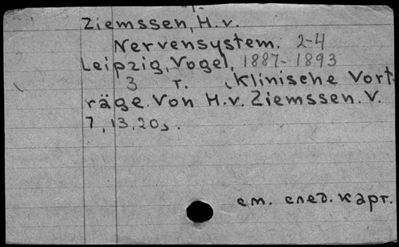 Ziemssen, H. v.
Nervensystem. 2-4
Leipzig, Vogel, 1887-1893
3 т. (Klinische Vort-
räge. Von H. v. Ziemssen. V.
7, 13, 20).
см. след. карт.